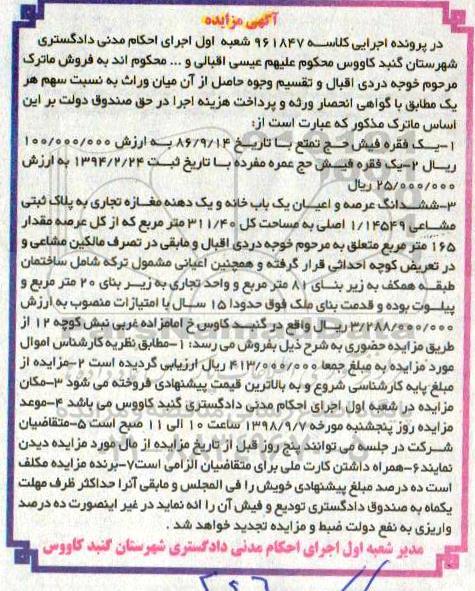 آگهی مزایده
در پرونده اجرایی کلاسه ۹۶۱۸۴۷ شعبه اول اجرای احکام مدنی دادگستری
شهرستان گنبد کاووس محکوم علیهم عیسی اقبالی و ... محکوم اند به فروش ماترک
مرحوم خوجه دردی اقبال و تقسیم وجوه حاصل از آن میان وراث به نسبت سهم هر
یک مطابق با گواهی انحصار ورثه و پرداخت هزینه اجرا در حق صندوق دولت بر این
اساس ماترک مذکور که عبارت است از:
۱-یک فقره فیش حج تمتع با تاریخ ۸۶/۹/۱۴ به ارزش ۱۰۰/۰۰۰/۰۰۰
ریال ۲-یک فقره فیش حج عمره مفرده با تاریخ ثبت ۱۳۹۴/۲/۲۴ به ارزش
۲۵/۰۰۰/۰۰۰ ریال
۳-ششدانگ عرصه و اعیان یک باب خانه و یک دهنه مغازه تجاری به پلاک ثبتی
مشاعی ۱/۱۴۵۴۹ اصلی به مساحت کل ۳۱۱/۴۰ متر مربع که از کل عرصه مقدار
۱۶۵ متر مربع متعلق به مرحوم خوجه دردی اقبال و مابقی در تصرف مالکین مشاعی و
در تعریض کوچه احداثی قرار گرفته و همچنین اعیانی مشمول ترکه شامل ساختمان
طبقه همکف به زیر بنای ۸۱ متر مربع و واحد تجاری به زیر بنای ۲۰ متر مربع و
پیلوت بوده و قدمت بنای ملک فوق حدودا ۱۵ سال با امتیازات منصوب به ارزش
۳/۲۸۸/۰۰۰/۰۰۰ ریال واقع در گنبد کاوس خ امامزاده غربی نبش کوچه ۱۲ از
طریق مزایده حضوری به شرح ذیل بفروش می رسد: ۱-مطابق نظریه کارشناس اموال
مورد مزایده به مبلغ جمعا ۴۱۳/۰۰۰/۰۰۰ ریال ارزیابی گردیده است ۲-مزایده از
مبلغ پایه کارشناسی شروع و به بالاترین قیمت پیشنهادی فروخته می شود ۳-مکان
مزایده در شعبه اول اجرای احکام مدنی دادگستری گنبد کاووس می باشد ۴-موعد
مزایده روز پنجشنبه مورخه ۱۳۹۸/۹/۷ ساعت ۱۰ الی ۱۱ صبح است ۵-متقاضیان
شرکت در جلسه می توانند پنج روز قبل از تاریخ مزایده از مال مورد مزایده دیدن
نمایند۶-همراه داشتن کارت ملی برای متقاضیان الزامی است۷-برنده مزایده مکلف
است ده درصد مبلغ پیشنهادی خویش را فی المجلس و مابقی آنرا حداکثر ظرف مهلت
یکماه به صندوق دادگستری تودیع و فیش آن را ائه نماید در غیر اینصورت ده درصد
واریزی به نفع دولت ضبط و مزایده تجدید خواهد شد .
مدیر شعبه اول اجرای احکام مدنی دادگستری شهرستان گنبد کاووس